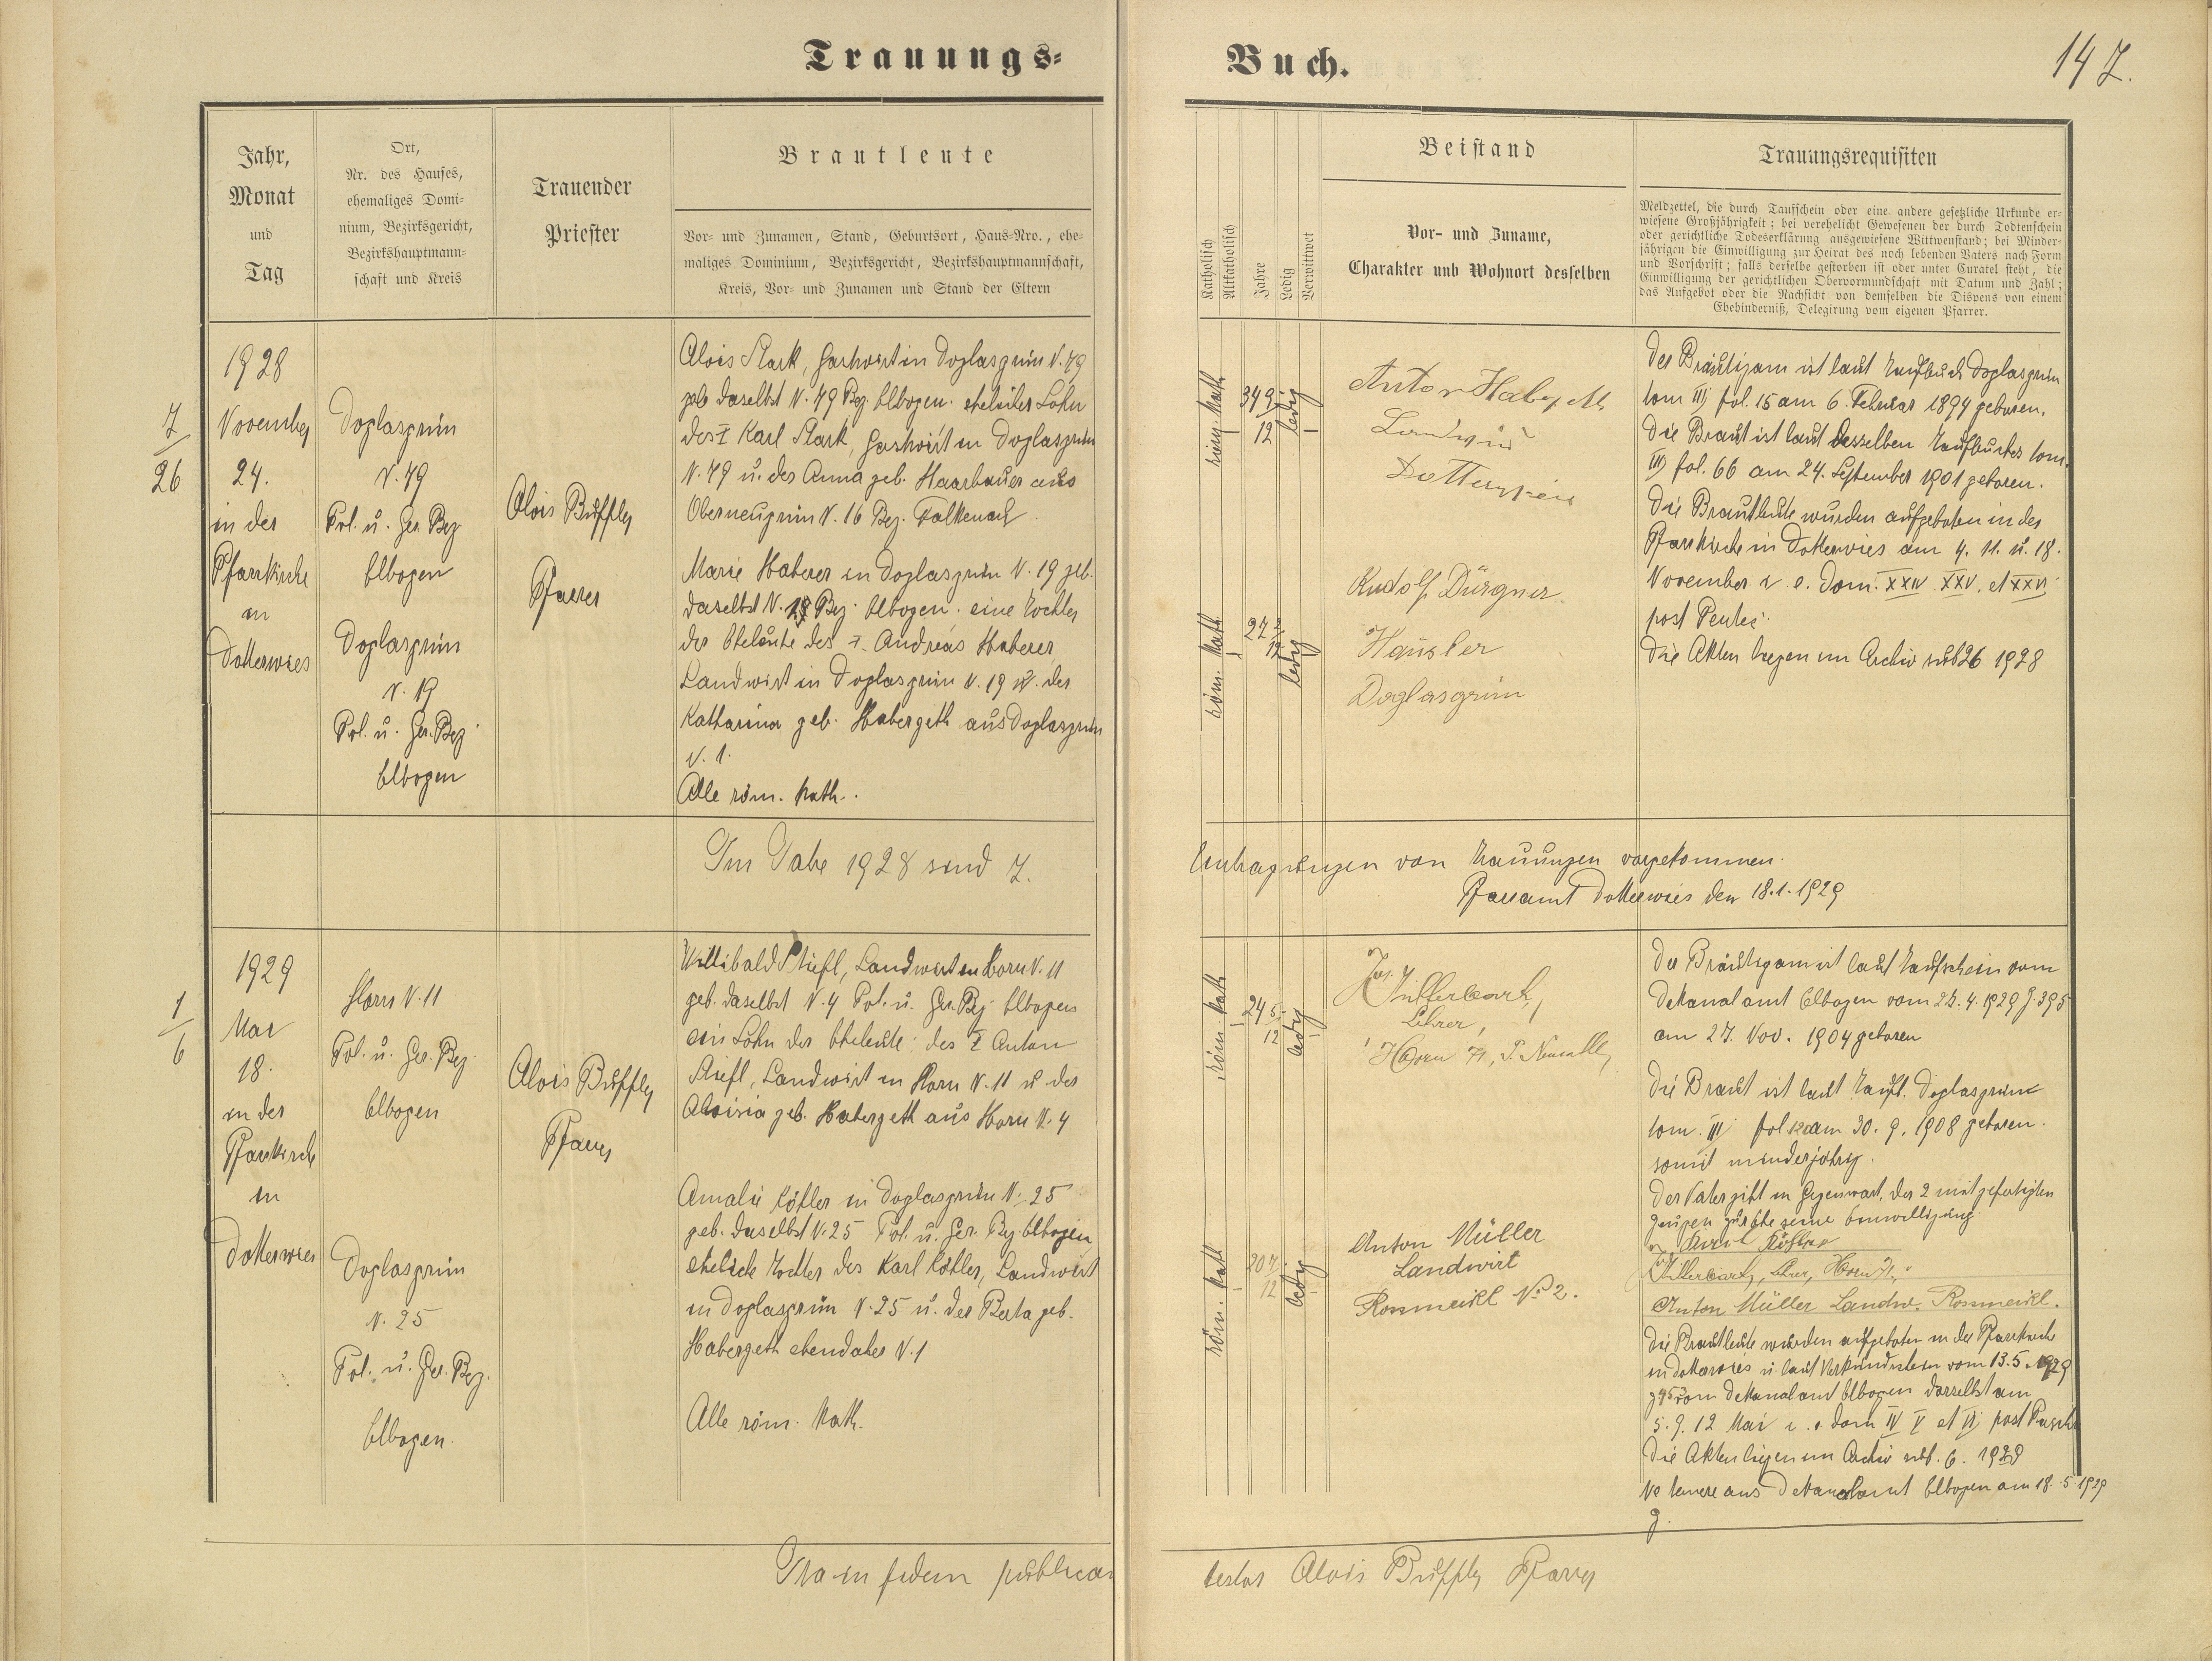 Trauungs-
Buch.
147.
Jahr,
Monat
und
Tag
Ort,
Nr. des Hauses,
ehemaliges Domi-
nium, Bezirksgericht,
Bezirkshauptmann-
schaft und Kreis
Trauender
Priester
Brautleute
Vor- und Zunamen, Stand, Geburtsort, Haus-Nro., ehe-
maliges Dominium, Bezirksgericht, Bezirkshauptmannschaft,
Kreis, Vor- und Zunamen und Stand der Eltern
Katholisch
Altkatholisch
Jahre
Ledig
Verwittwet
Beistand
Vor- und Zuname,
Charakter und Wohnort desselben
Trauungsrequisiten
Meldzettel, die durch Taufschein oder eine andere gesetzliche Urkunde er-
wiesene Großjährigkeit; bei verehelicht Gewesenen der durch Todtenschein
oder gerichtliche Todeserklärung ausgewiesene Wittwenstand; bei Minder-
jährigen die Einwilligung zur Heirat des noch lebenden Vaters nach Form
und Vorschrift; falls derselbe gestorben ist oder unter Curatel steht, die
Einwilligung der gerichtlichen Obervormundschaft mit Datum und Zahl;
das Aufgebot oder die Nachsicht von demselben die Dispens von einem
Ehehinderniß, Delegirung vom eigenen Pfarrer.
7
26
1928
November
24.
in der
Pfarrkirche
in
Dotterwies
Doglasgrün
N. 79
Pol. u. Ger. Bez.
Elbogen
Doglasgrün
N. 19
Pol. u. Ger. Bez.
Elbogen
Alois Buffly
Pfarrer
Alois Stark, Gastwirt in Doglasgrün N. 79
geb. daselbst N. 79 Bez. Elbogen. ehelicher Sohn
des † Karl Stark, Gastwirt in Doglasgrün
N. 79 u. der Anna geb. Haarbauer aus
Oberneugrün N. 16 Bez. Falkenau
Marie Haberer in Doglasgrün N. 19 geb.
daselbst N. 19 Bez. Elbogen. eine Tochter
der Eheleute des †. Andreas Haberer
Landwirt in Doglasgrün N. 19 u. der
Katharina geb. Habergeth aus Doglasgrün
N. 1.
Alle röm. kath.
röm. kath
34 9/12
ledig
röm. kath
27 2/12
ledig
Anton
Landwirt
Dotterwies
Rudolf Dürgner
Häusler
Doglasgrün
Der Bräutigam ist laut Taufbuch Doglasgrün
tom III) fol. 15 am 6. Februar 1894 geboren.
Die Braut ist laut desselben Taufbuches tom.
III) fol. 66 am 24. September 1901 geboren.
Die Brautleute wurden aufgeboten in der
Pfarrkirche in Dotterwies am 4. 11. u. 18.
November i. e. Dom. XXIV XXV. et XXVI
post Pentec.
Die Akten liegen im Archiv sub 26 1928
Im Jahre 1928 sind 7.
Eintragungen von Trauungen vorgekommen.
Pfarramt Dotterwies den 18.1.1929
1
6
1929
Mai
18.
in der
Pfarrkirche
in
Dotterwies
Horn N. 11
Pol. u. Ger. Bez.
Elbogen
Doglasgrün
N. 25
Pol. u. Ger. Bez.
Elbogen.
Alois Buffly
Pfarrer
Willibald Stiefl, Landwirt in Horn N. 11
geb. daselbst N. 4 Pol. u. Ger. Bez. Elbogen
ein Sohn der Eheleute: des † Anton
Stiefl, Landwirt in Horn N. 11 u. der
Aloisia geb. Habergeth aus Horn N. 4
Amalie Köhler in Doglasgrün N. 25
geb. daselbst N. 25 Pol. u. Ger. Bez. Elbogen
eheliche Tochter des Karl Köhler, Landwirt
in Doglasgrün N. 25 u. der Berta geb.
Habergeth ebendaher N. 1
Alle röm. kath.
röm. kath
24 5/12
ledig
röm. kath
20 7/12
ledig
Jos.
Lehrer,
Horn 71, P.
Anton Müller
Landwirt
Rossmeisl No 2.
Der Bräutigam ist laut Taufschein vom
Dekanalamt Elbogen vom 4. 1929 395
am 27. Nov. 1904 geboren
Die Braut ist laut Taufb. Doglasgrün
tom. III) fol. am 30. 9. 1908 geboren.
somit minderjährig.
Der Vater gibt in Gegenwart der 2 mitgefertigten
Zeugen seine Einwilligung
Karl Köhler
Lehrer, Horn 71.
Anton Müller Landw. Rossmeisl.
Die Brautleute wurden aufgeboten in der Pfarrkirche
in Dotterwies u. laut Verkündschein vom 13. 5. 1929
vom Dekanalamt Elbogen daselbst am
5. 9. 12 Mai i. e. dom IV V et VI) post Pascha
Die Akten liegen im Archiv sub. 6. 1929
Ne temere aus Dekanalamt Elbogen am 18. 5. 1929
Ita in fidem publicam
testor Alois Buffly Pfarrer